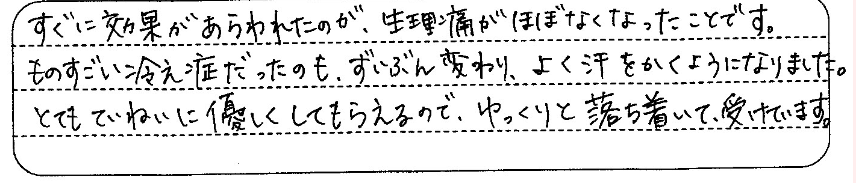 すぐに効果があらわれたのが、生理痛がほぼなくなったことです。
ものすごい冷え症だったのも、ずいぶん変わり、よく汗をかくようになりました。
とてもていねいに優しくしてもらえるので、ゆっくりと落ち着いて、受けています。